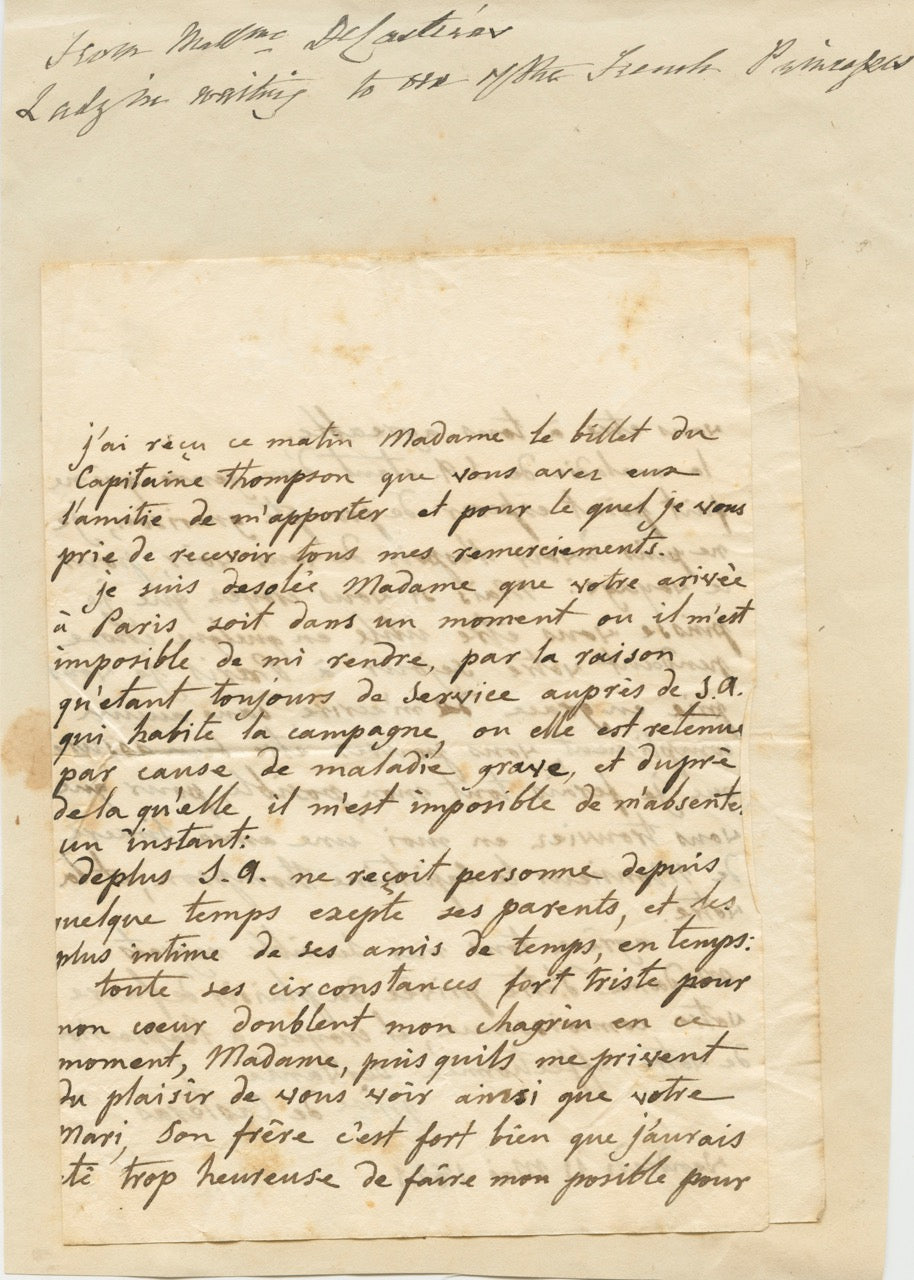 From Madme De Casteras
Lady in waiting to one of the French Princesses
j'ai réçu ce matin Madame le billet du
Capitaine Thompson que vous avez eux
l'amitie de m'apporter et pour le quel je vous
prie de recevoir tous mes remerciements.
je suis desolée Madame que votre arivée
à Paris soit dans un moment ou il m'est
imposible de mi rendre, par la raison
qu'etant toujours de service auprès de S.A.
qui habite la campagne, ou elle est retenue
par cause de maladie grave, et duprè
dela qu'elle il m'est imposible de m'absente
un instant:
deplus S.A. ne reçoit personne depuis
quelque temps exepte ses parents, et les
plus intime de ses amis de temps, en temps:
toute ses circonstances fort triste pour
mon coeur doublent mon chagrin en ce
moment, Madame, puis quils me privent
du plaisir de vous voir ainsi que votre
Mari, Son frère c'est fort bien que j'aurais
été trop heureuse de faire mon posible pour